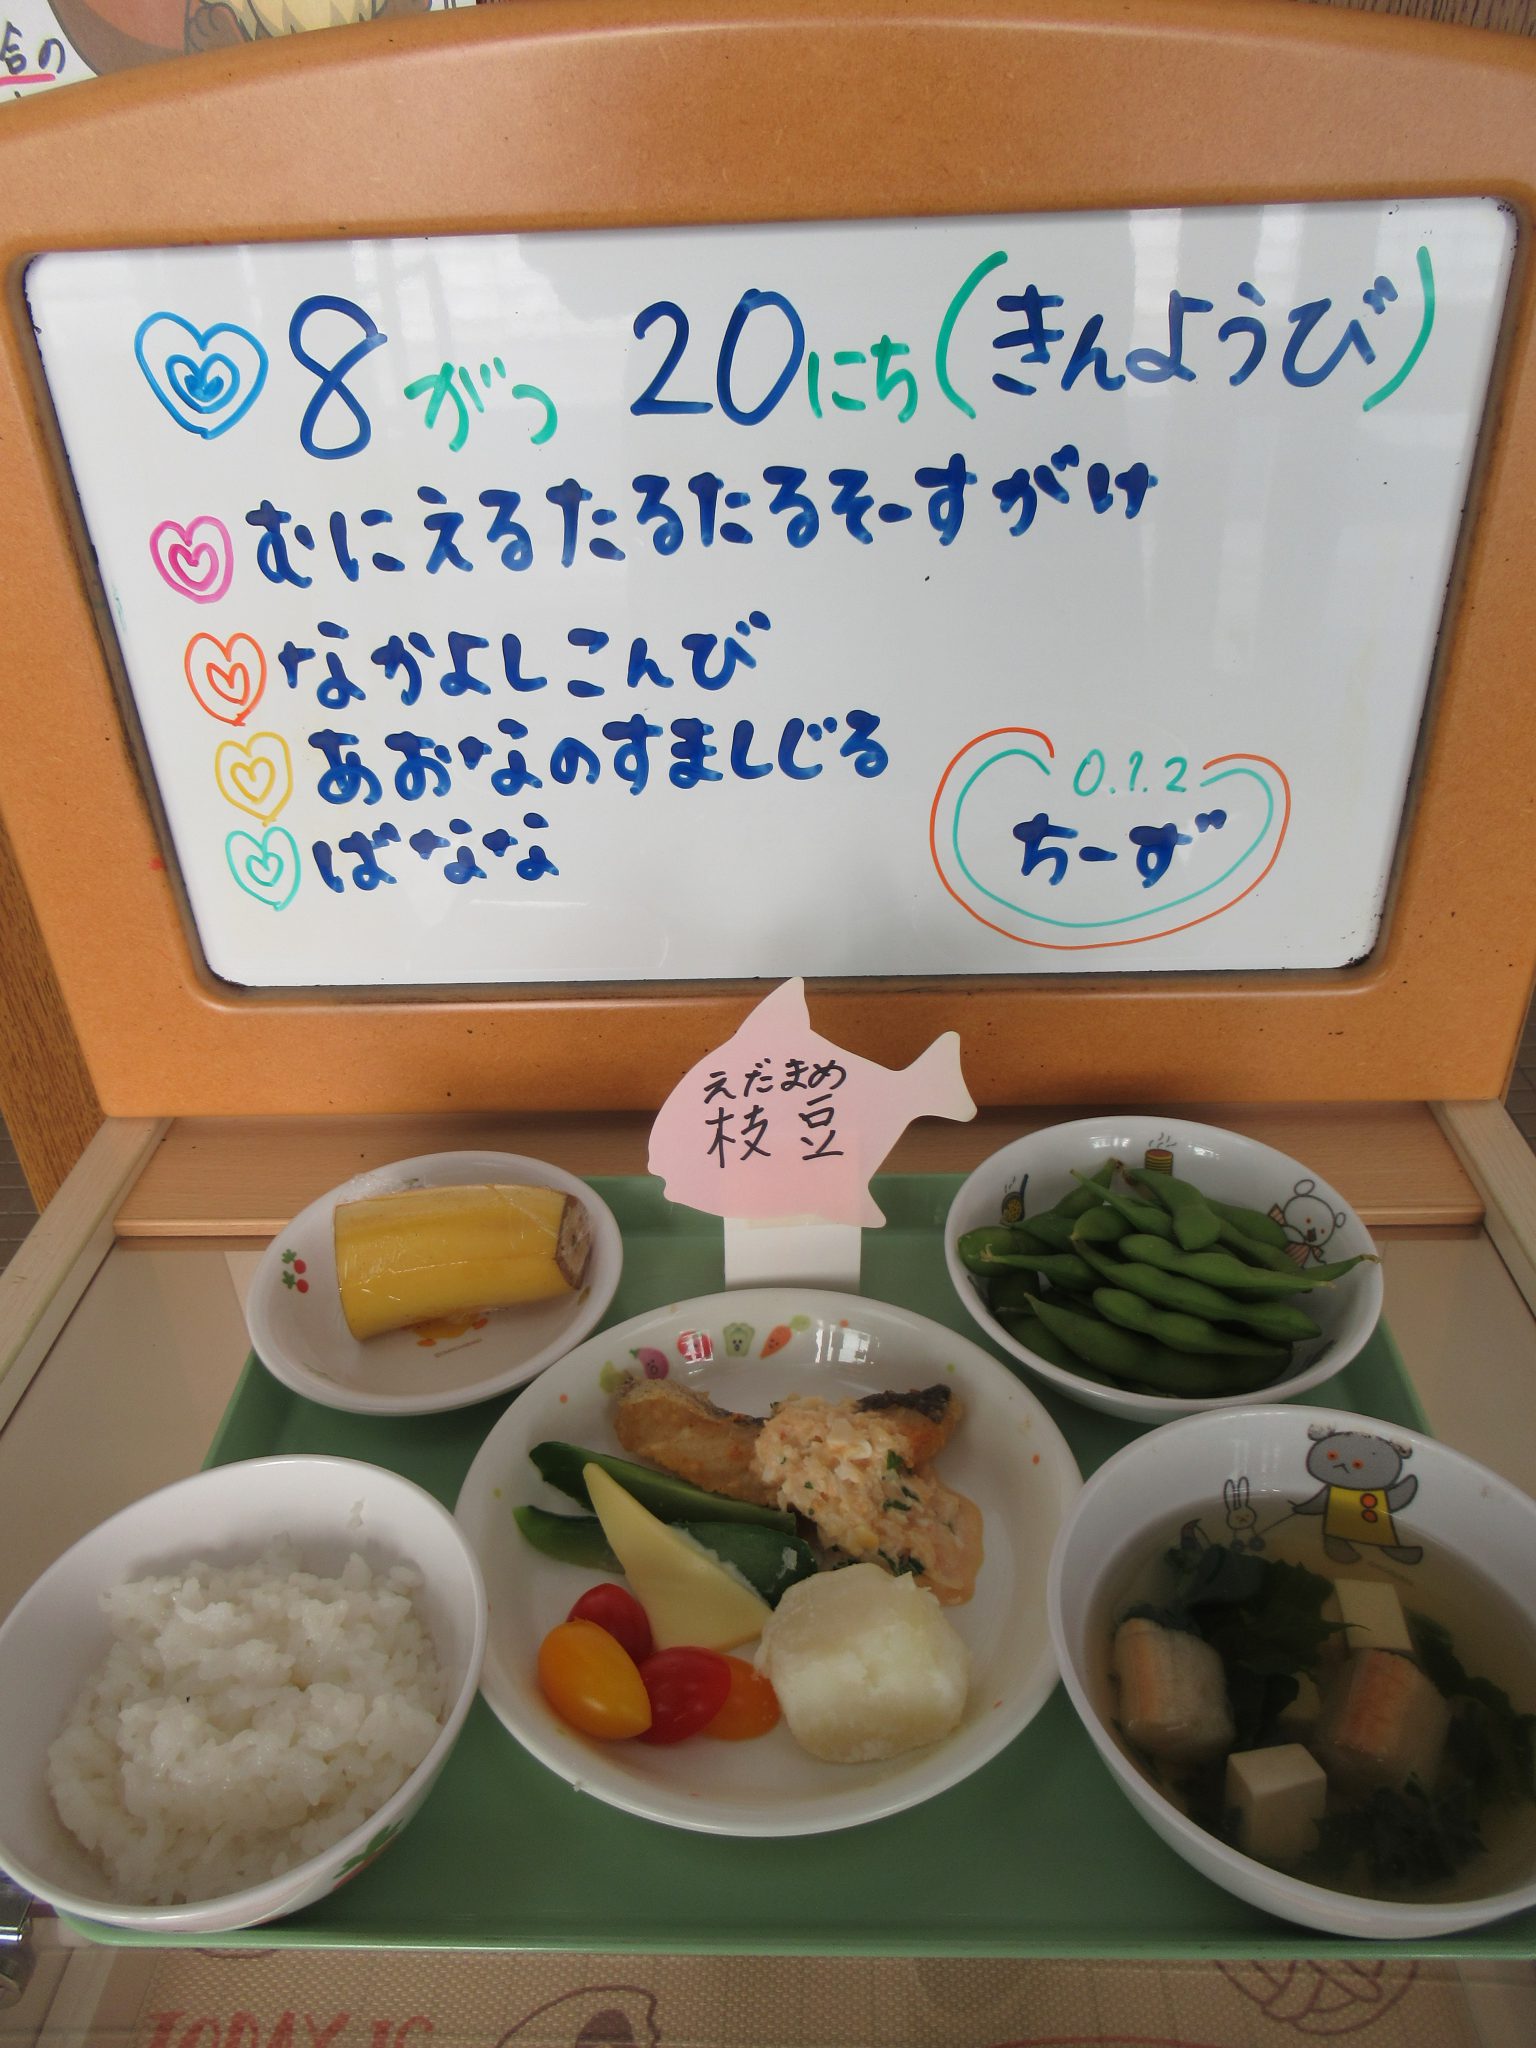 合の
8がつ 20にち(きんようび)
むにえるたるたるそーすがけ
なかよしこんび
あおなのすましじる
0.1.2
ちーず
ばなな
えだまめ
枝豆
TODAY IS